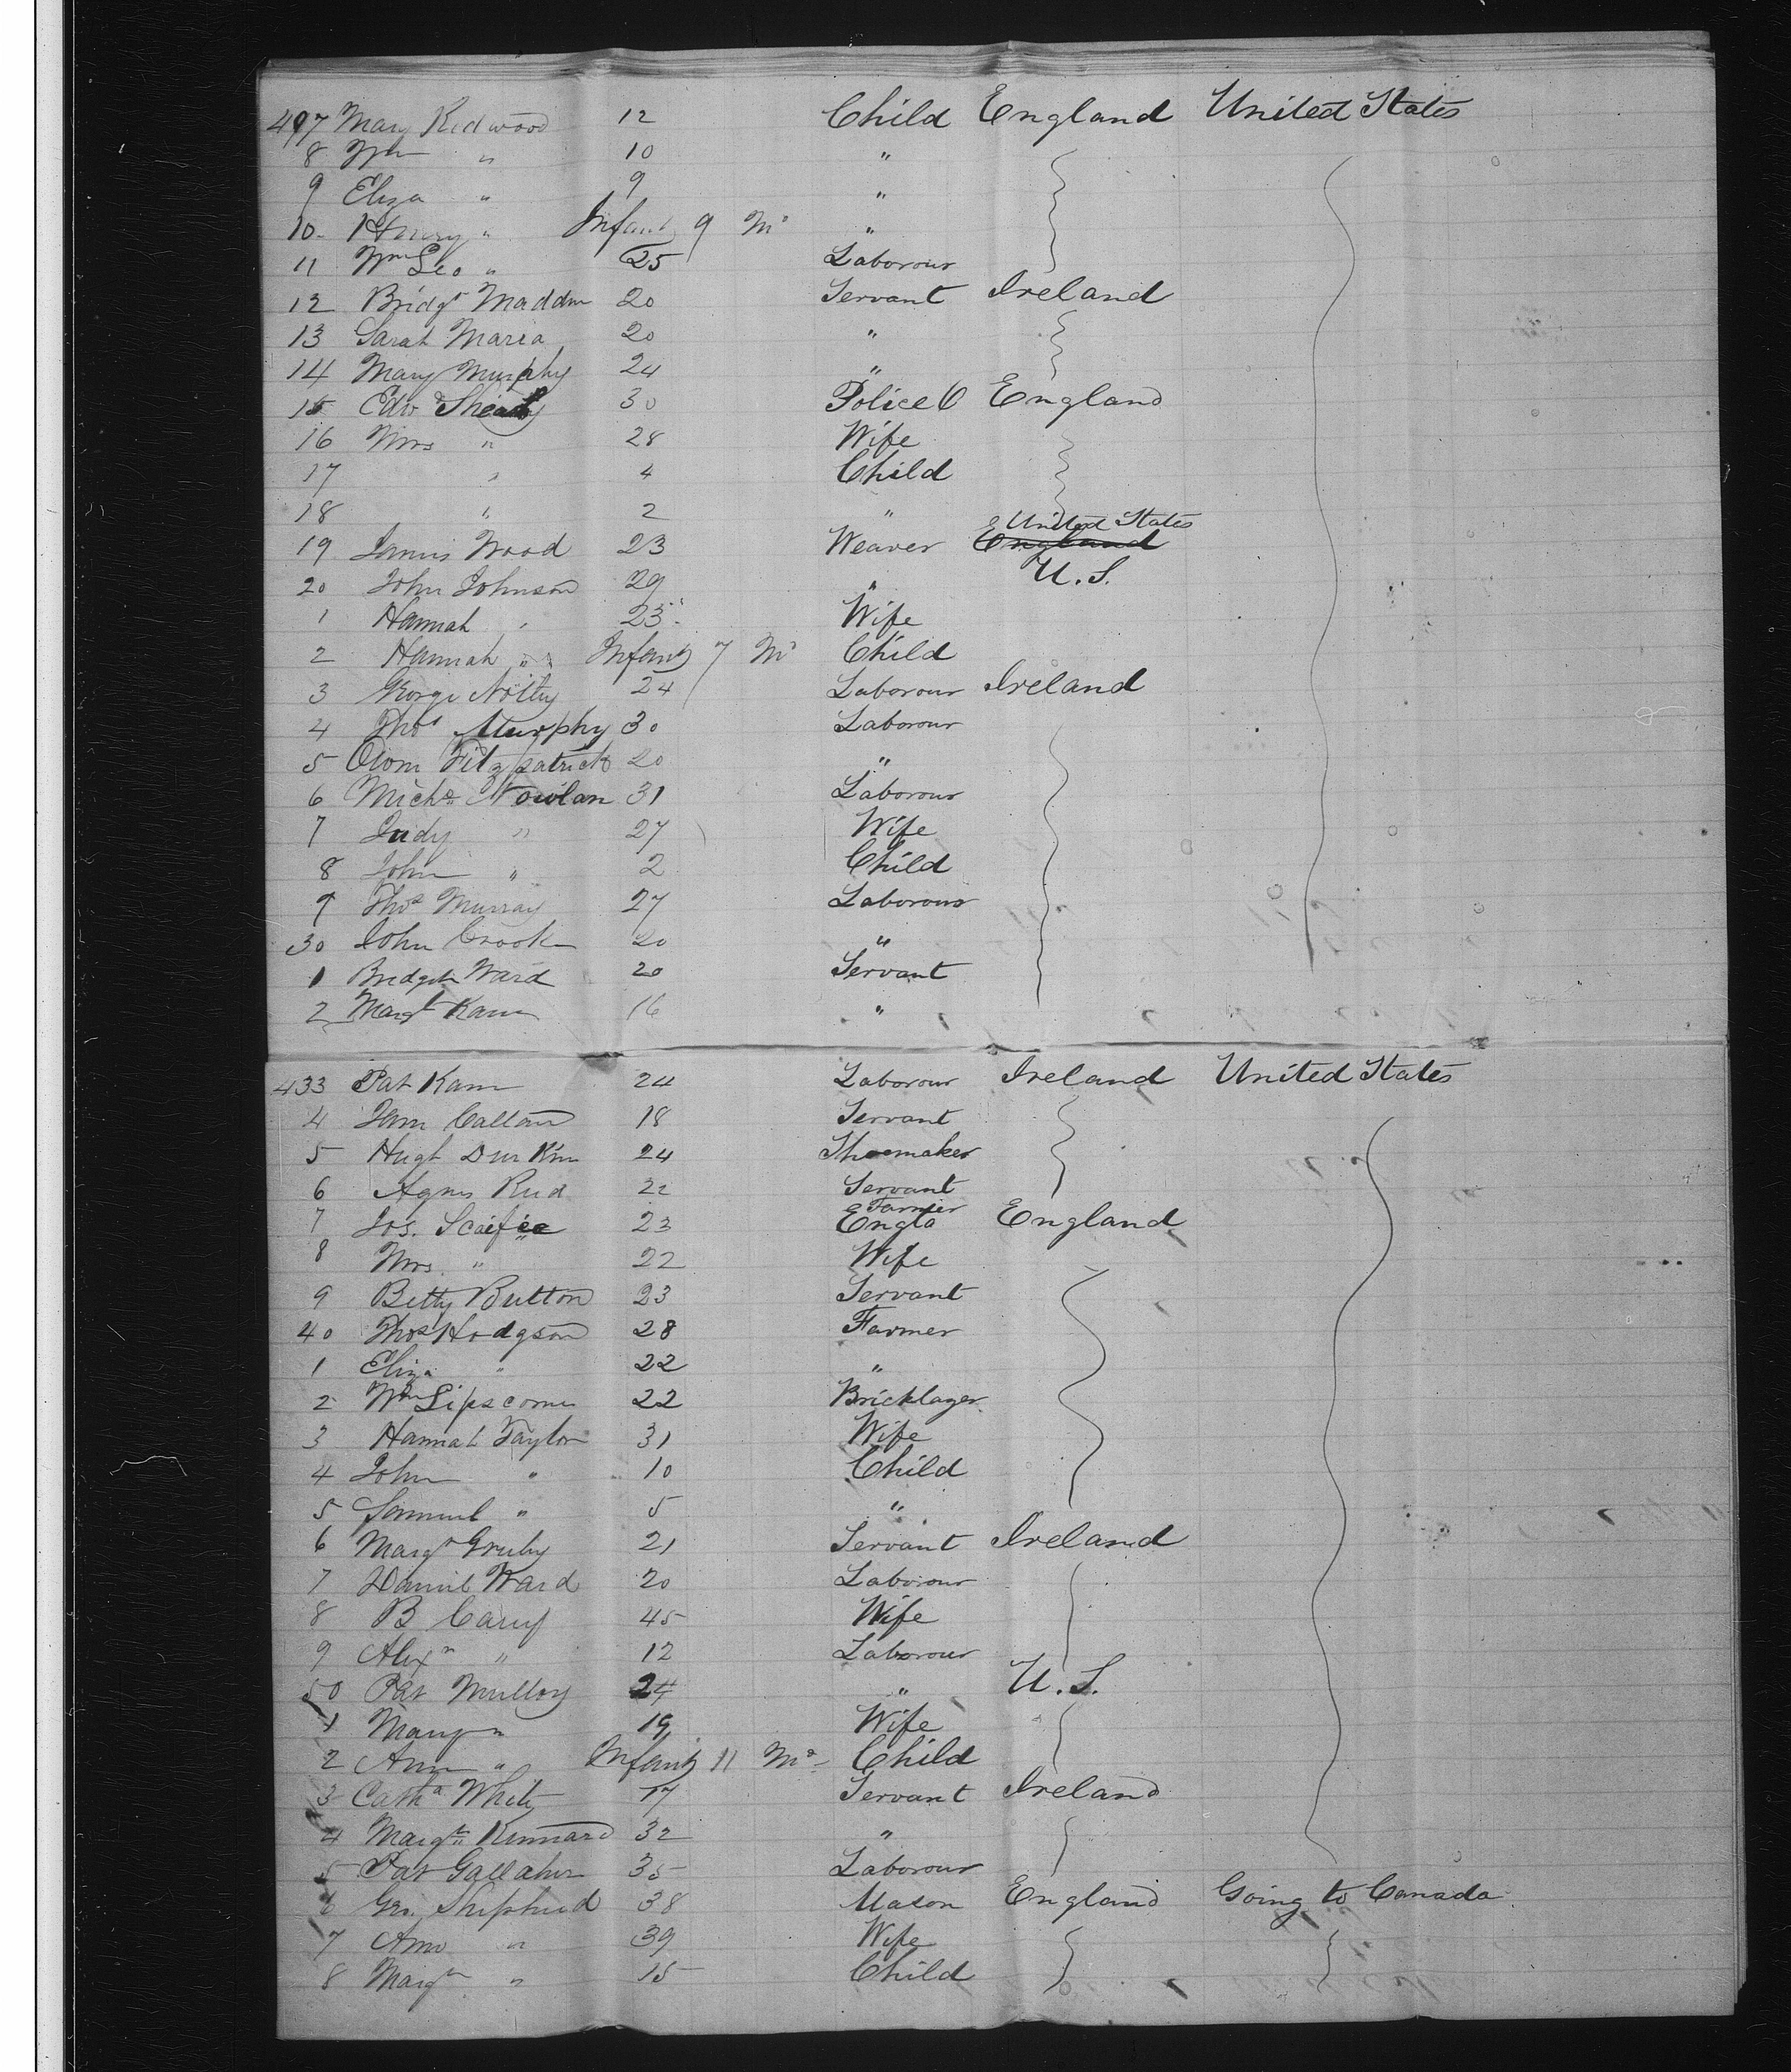 497 Mary Redwood 12 Child England United States
8 Wm " 10 "
9 Eliza " 9 "
10 Henry " Infant 9 Ms "
11 Wm Geo " 25 Laborour
12 Bridgt Madden 20 Servant Ireland
13 Sarah Maria 20 "
14 Mary Murphy 24 "
15 Edwd Sheady 30 Police C England
16 Mrs " 28 Wife
17 " 4 Child
18 " 2 "
19 James Wood 23 Weaver England United States
20 John Johnson 29 " U.S.
1 Hannah " 23 Wife
2 Hannah " Infant 7 Ms Child
3 George Nolty 24 Laborour Ireland
4 Thos Murphy 30 Laborour
5 Fitzpatrick 20 "
6 Michl Nowlan 31 Laborour
7 Judy " 27 Wife
8 John " 2 Child
9 Thos Murray 27 Laborour
30 John Crook 20 "
1 Bridget Ward 20 Servant
2 Margt Kann 16 "
433 Pat Kann 24 Laborour Ireland United States
4 Callan 18 Servant
5 Hugh Durkin 24 Shoemaker
6 Agnes Reid 22 Servant
7 Jos. Scaife 23 Farmer Engld England
8 Mrs " 22 Wife
9 Betty Button 23 Servant
40 Thos Hodgson 28 Farmer
1 Eliza " 22 "
2 Wm Lipscome 22 Bricklayer
3 Hannah Taylor 31 Wife
4 John " 10 Child
5 Samuel " 5 "
6 Margt 21 Servant Ireland
7 Daniel Ward 20 Laborour
8 B Carey 45 Wife
9 Alexr " 12 Laborour
50 Pat Mulloy 24 " U.S.
1 Mary " 19 Wife
2 Ann " Infant 11 Ms Child
3 Catha White 17 Servant Ireland
4 Margt Kennard 32 "
5 Pat Gallaher 35 Laborour
6 Geo. Shepherd 38 Mason England Going to Canada
7 Ann " 39 Wife
8 Margt " 15 Child